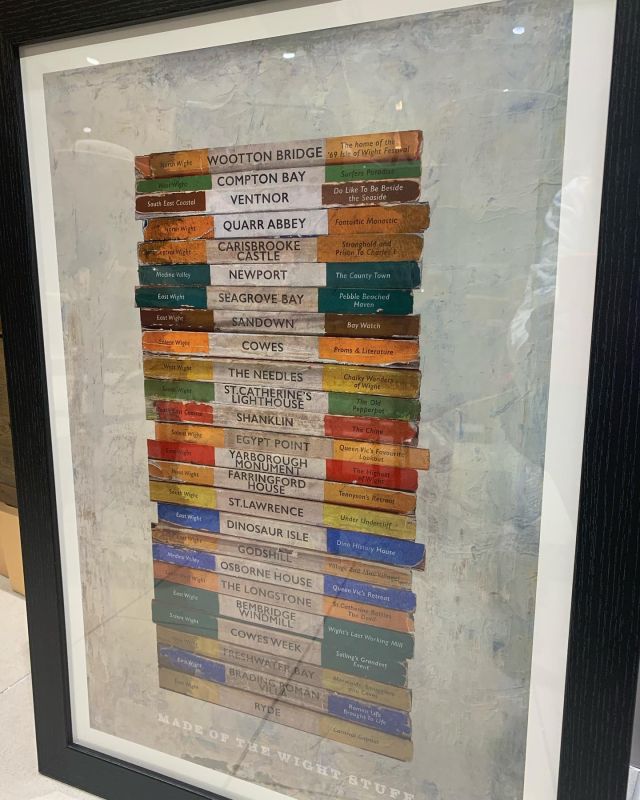 North Wight WOOTTON BRIDGE The home of the
'69 Isle of Wight Festival
West Wight COMPTON BAY Surfers Paradise
South East Coastal VENTNOR Do Like To Be Beside
the Seaside
North Wight QUARR ABBEY Fantastic Monastic
Central Wight CARISBROOKE
CASTLE Stronghold and
Prison To Charles I
Medina Valley NEWPORT The County Town
East Wight SEAGROVE BAY Pebble Beached
Haven
East Wight SANDOWN Bay Watch
Solent Wight COWES Proms & Literature
West Wight THE NEEDLES Chalky Wonders
of Wight
South Wight ST.CATHERINE'S
LIGHTHOUSE The Old
Pepperpot
South East Coastal SHANKLIN The Chine
Solent Wight EGYPT POINT Queen Vic's Favourite
Lookout
East Wight YARBOROUGH
MONUMENT The Highest
of Wight
West Wight FARRINGFORD
HOUSE Tennyson's Retreat
South Wight ST.LAWRENCE Under Undercliff
East Wight DINOSAUR ISLE Dino History House
GODSHILL Village And Mini Village!
Medina Valley OSBORNE HOUSE Queen Vic's Retreat
THE LONGSTONE St.Catherine Battles
The Devil
East Wight BEMBRIDGE
WINDMILL Wight's Last Working Mill
Solent Wight COWES WEEK Sailing's Grandest
Event
FRESHWATER BAY
East Wight BRADING ROMAN
VILLA Roman Life
Brought To Life
East Wight RYDE Carnival Capital
MADE OF THE WIGHT STUFF